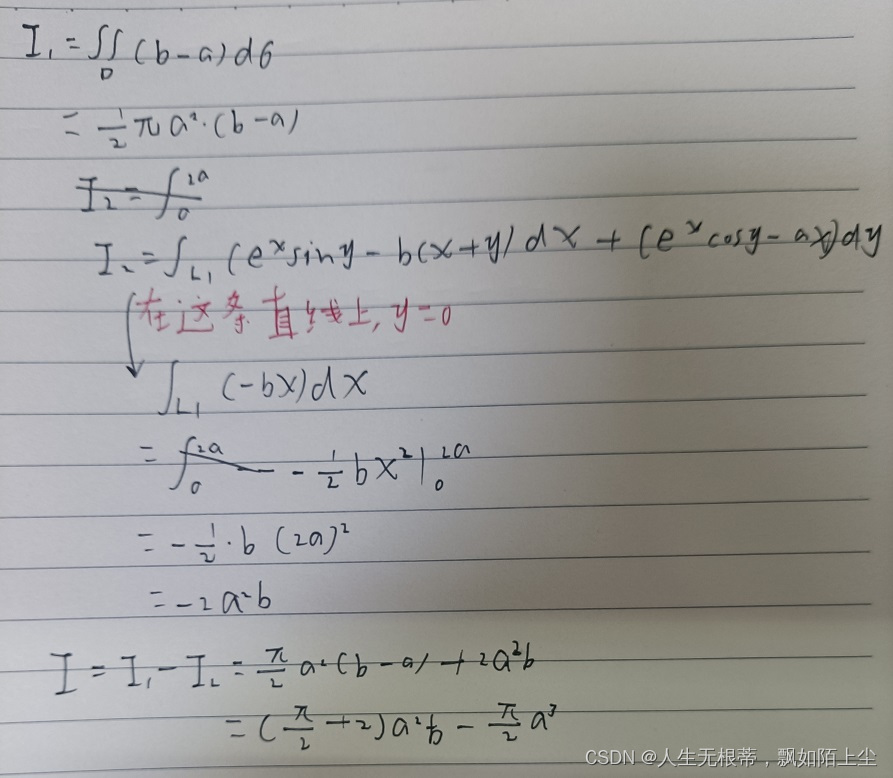 I₁ = ∬_D (b-a)dσ
= 1/2 πa²·(b-a)
I₂ = ∫₀^2a
I₂ = ∫_L₁ (eˣsiny - b(x+y)dx + (eˣcosy - ax)dy
在这条直线上, y=0
∫_L₁ (-bx)dx
= ∫₀^2a - 1/2 bx² |₀^2a
= -1/2·b (2a)²
= -2a²b
I = I₁ - I₂ = π/2 a²(b-a) + 2a²b
= (π/2 + 2)a²b - π/2 a³
CSDN @人生无根蒂，飘如陌上尘